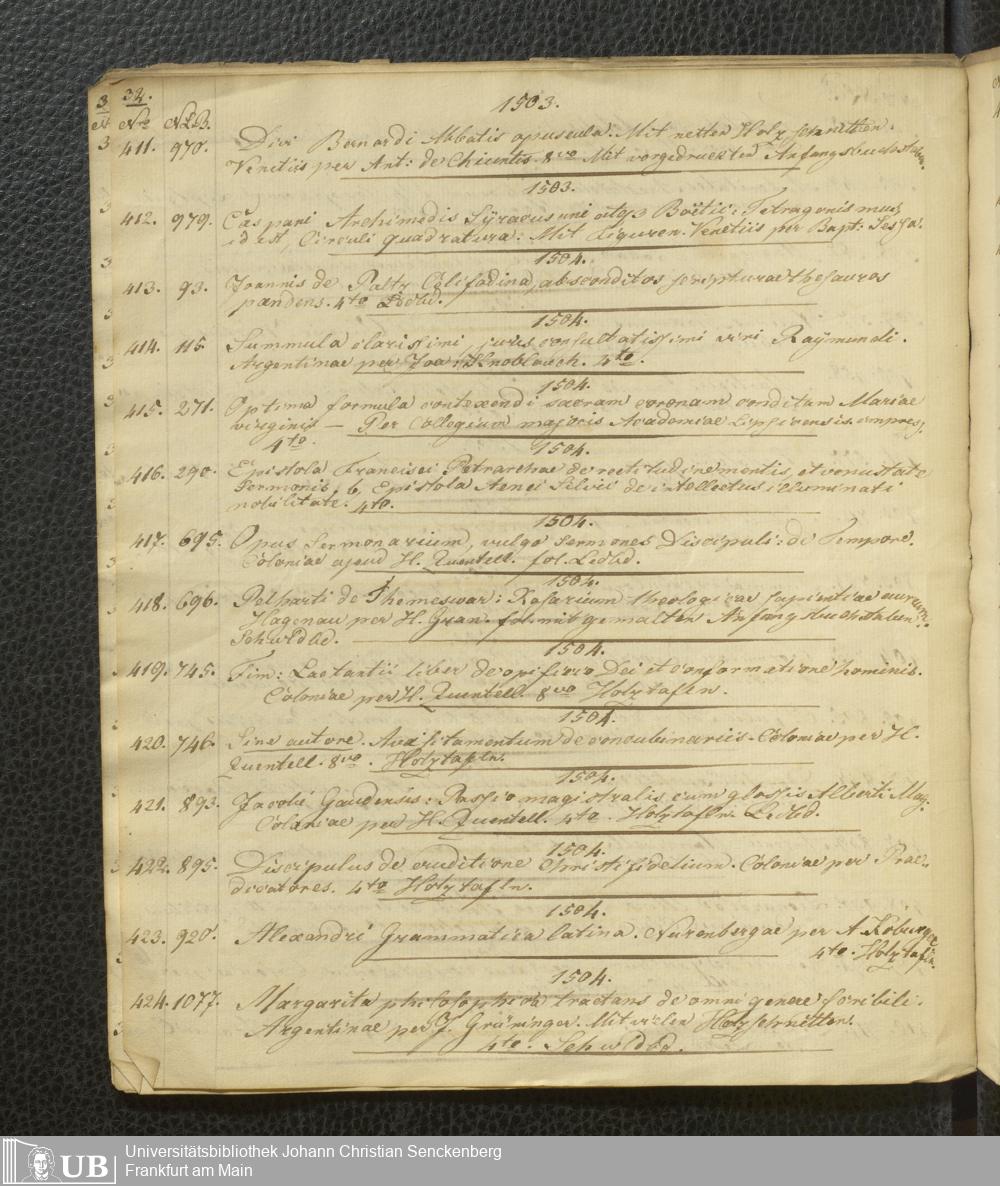 32.
1503.
Nro NLB.
411. 970. Divi Bernardi Abbatis opuscula. Mit netten Holzschnitten.
Venetiis per Ant: de Chientis. 8vo Mit vorgedruckten Anfangsbuchstaben.
1503.
412. 979. Cāspani Archimedis Sÿracusani atq3 Boëtii: Tetragonismus,
id est, Circuli quadratura. Mit Figuren. Venetiis per Bapt: Sessa.
1504.
413. 93. Joannis de Paltz Cölifodina, absconditos scripturae thesauros
pandens. 4to Ledbd.
1504.
414. 115. Summula clarissimi, juris consultatissimi viri Raÿmundi.
Argentinae per Joa: Knoblauch. 4to.
1504.
415. 271. Optima formula contexendi sacram coronam conditam Mariae
virginis — Per Collegium majoris Academiae Lipsicensis. impress.
4to.
1504.
416. 290. Epistola Francisci Petrarchae de rectitudine mentis, et venustate
sermonis, b, Epistola Aenei Silvii de intellectus illuminati
nobilitate. 4to.
1504.
417. 695. Opus Sermonarium, vulgo Sermones Discipuli: de Tempore.
Coloniae apud H. Quentell. fol. Ledbd.
1504.
418. 696. Pelbarti de Themeswar: Rosarium theologicae sapientiae aureum.
Hagenau per H. Gran. fol. mit gemalten Anfangsbuchstaben
Schwldbd.
1504.
419. 745. Fim: Lactantii liber de opificio Dei et conformatione hominis.
Coloniae per H. Quentell. 8vo Holztafln.
1504.
420. 746. Sine autore. Avisitamentum de concubinariis. Coloniae per H.
Quentell. 8vo. Holztafln.
1504.
421. 893. Jacobi Gaudensis: Passio magistralis cum glossis Alberti Mag.
Coloniae per H. Quentell. 4to. Holztafln. Ledbd.
1504.
422. 895. Discipulus de eruditione Christifidelium. Coloniae per Prae-
dicatores. 4to Holztafln.
1504.
423. 920. Alexandri Grammatica latina. Nurenbergae per A. Koburger
4to. Holztafln.
1504.
424. 1077. Margarita philosophica tractans de omni genere scribili.
Argentinae per J. Grüninger. Mit vielen Holzschnitten.
4to. Schwldbd.
UB
Universitätsbibliothek Johann Christian Senckenberg
Frankfurt am Main